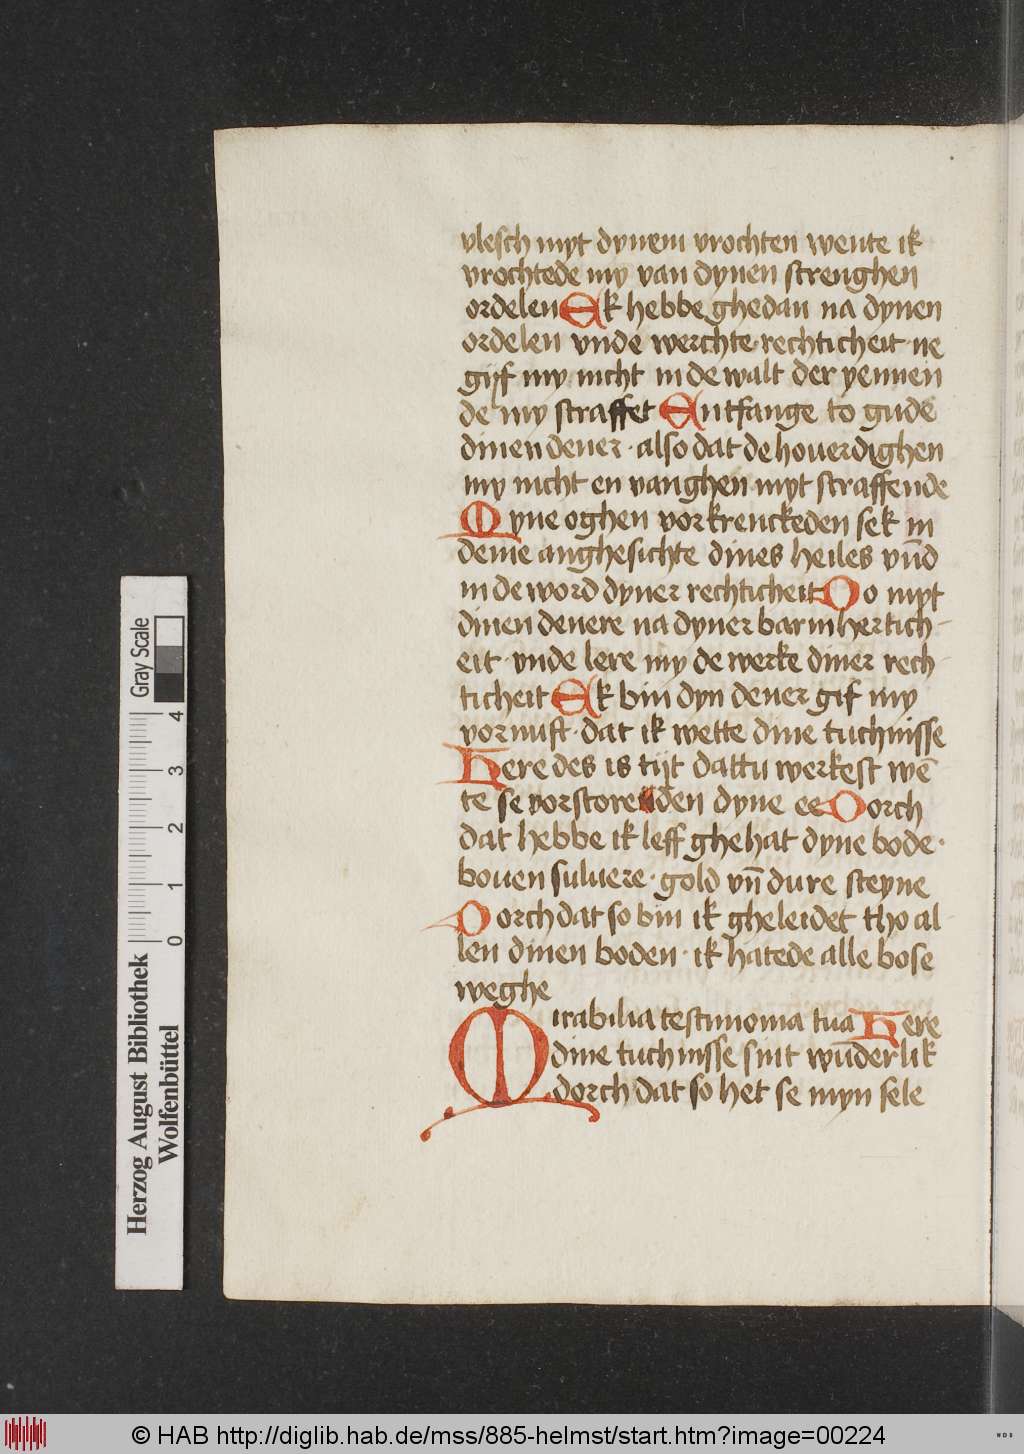 vlesch myt dynem vrochten wente ik
vrochtede my van dynen strenghen
ordelen Ek hebbe ghedan na dynen
ordelen vnde werchte rechticheit ne
gijf my nicht in de walt der yennen
de my straffet Entfange to gude
dinen dener · also dat de houerdighen
my nicht en vanghen myt straffende
Myne oghen vorkrenckeden sek in
deme anghesichte dines heiles vn̄d
in de word dyner rechticheit Do myt
dinen denere na dyner barmhertich-
eit · vnde lere my de werke diner rech-
ticheit Ek bin dyn dener gif my
vornuft · dat ik wette dine tuchnisse
Here des is tijt dattu werkest wē
te se vorstoreden dyne ee Dorch
dat hebbe ik leff ghehat dyne bode ·
bouen suluere · gold vn̄ dure steyne
Dorch dat so bin ik gheleidet tho al-
len dinen boden · ik hatede alle bose
weghe
Mirabilia testimonia tua Here
dine tuchnisse sint wūderlik
dorch dat so het se myn sele
Gray Scale
4
3
2
1
0
Herzog August Bibliothek
Wolfenbüttel
© HAB http://diglib.hab.de/mss/885-helmst/start.htm?image=00224